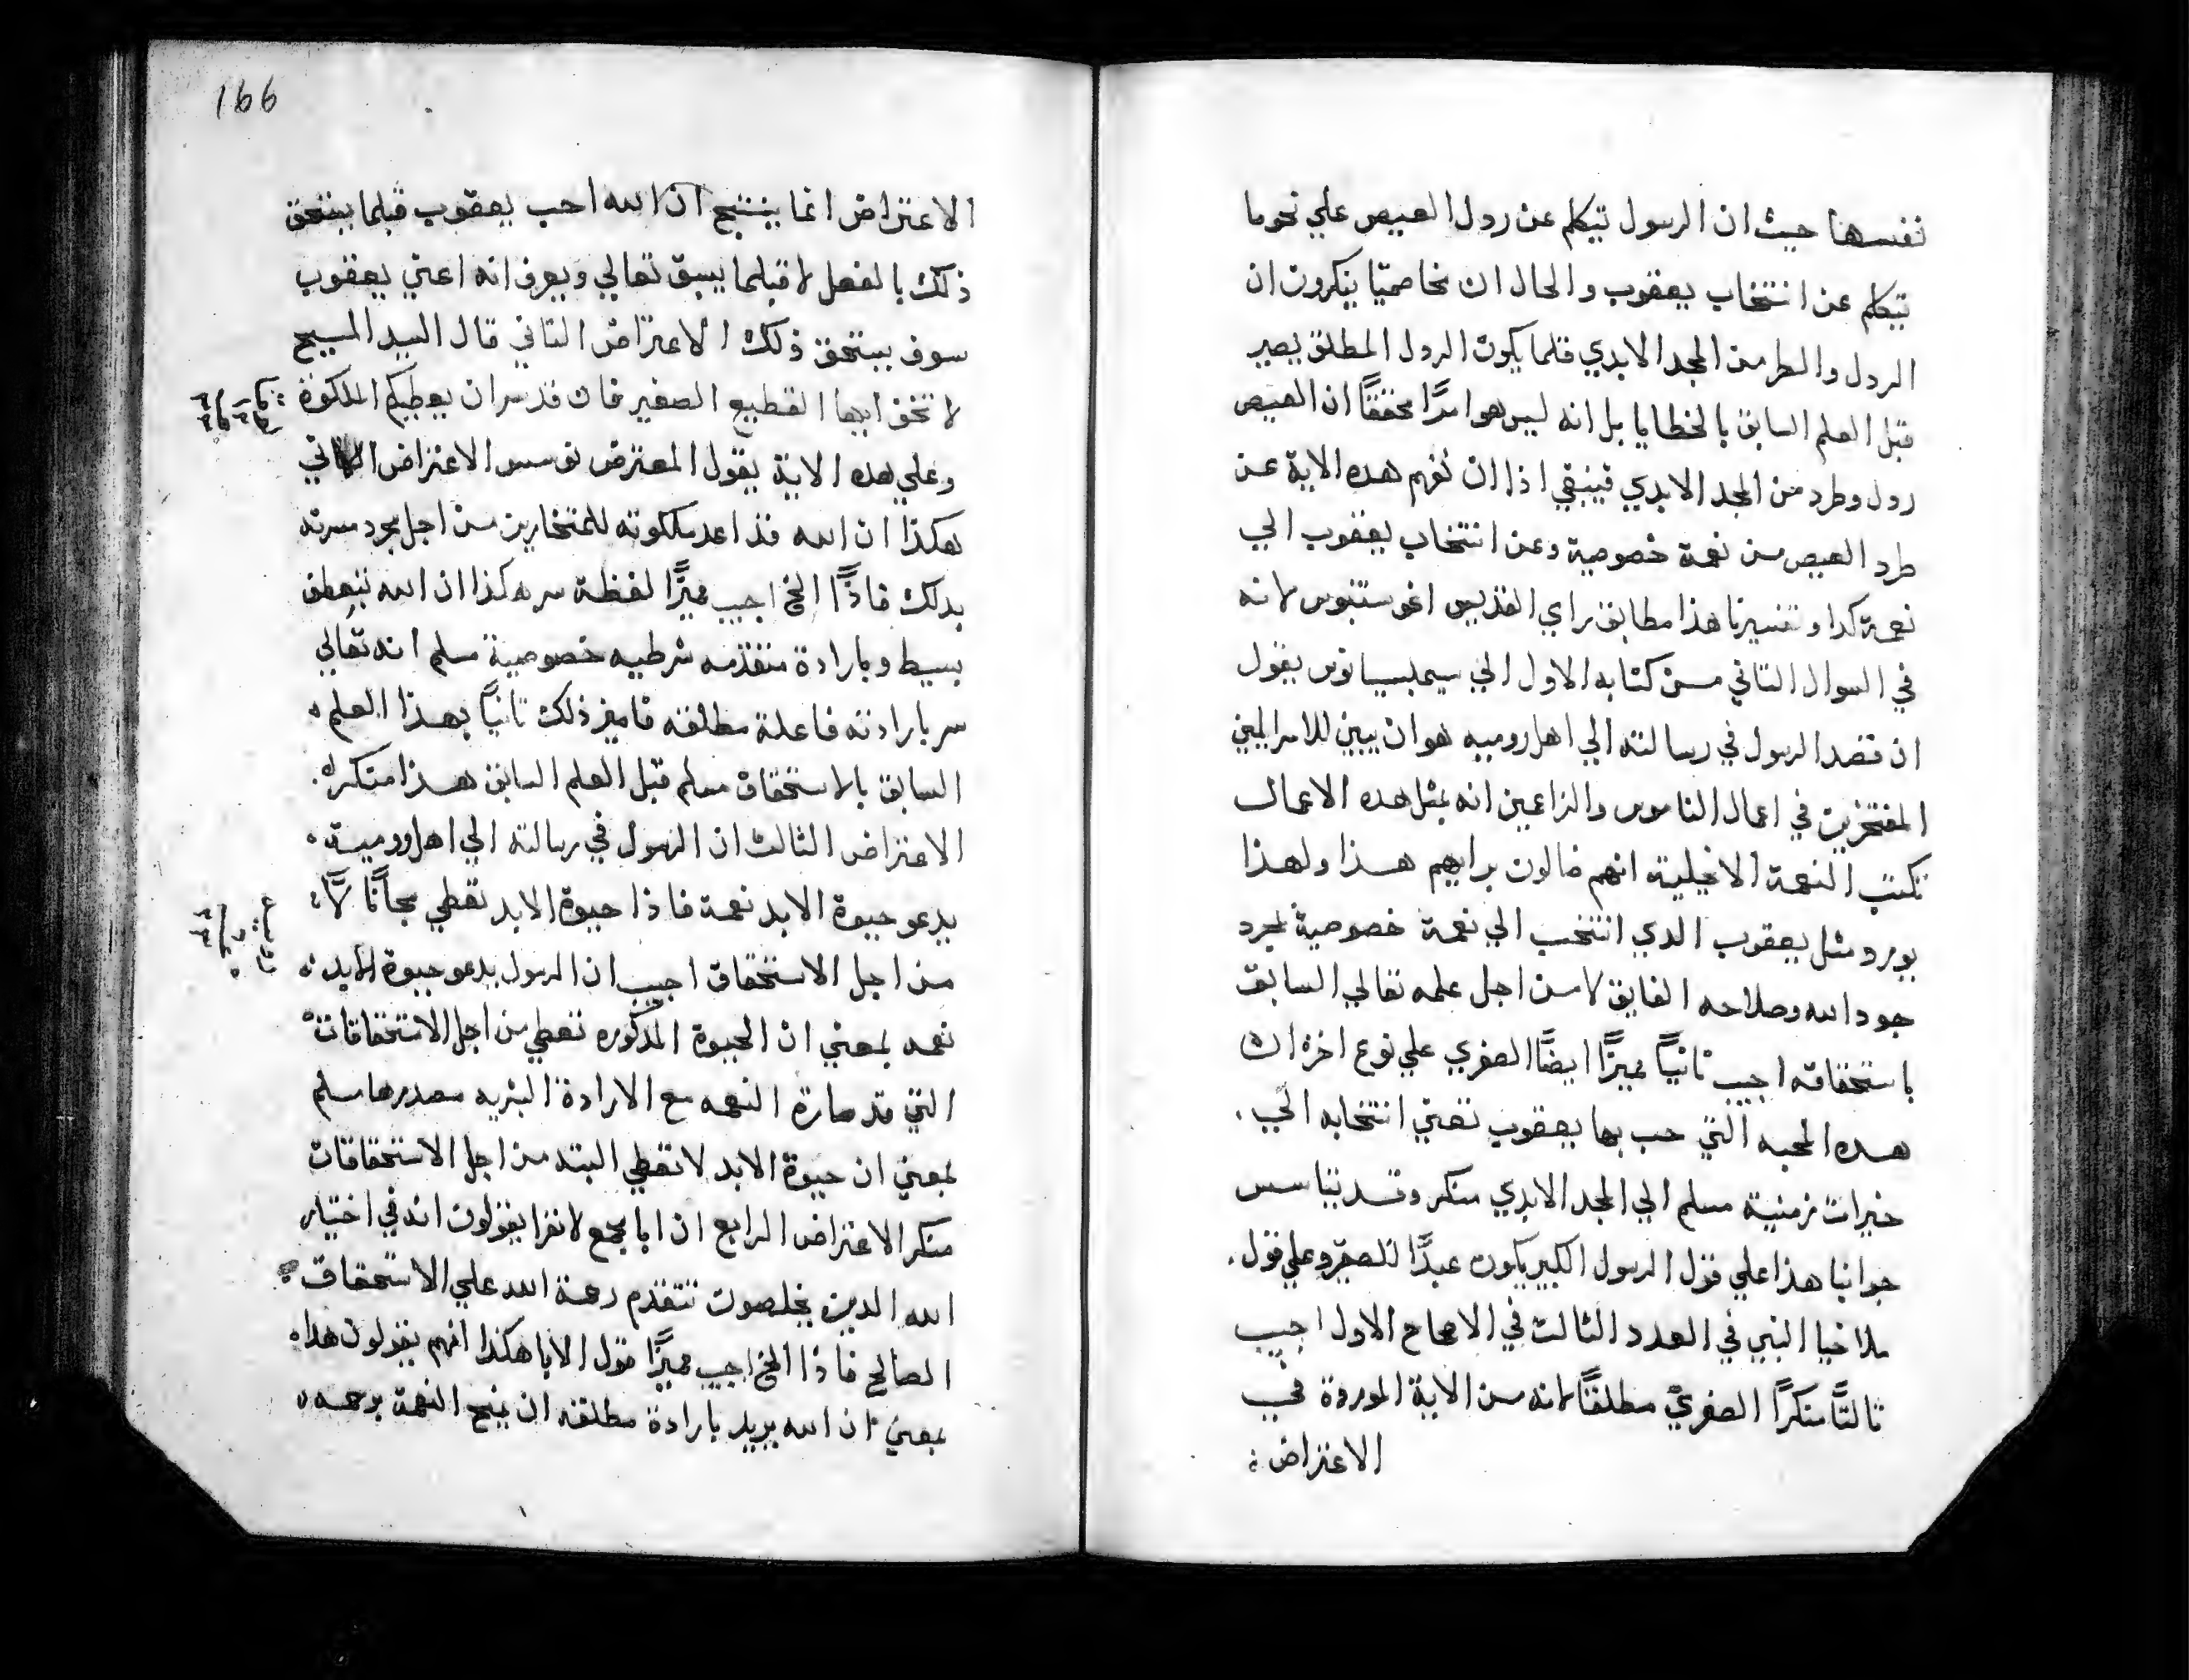 نفسها حيث ان الرسول تيكلم عن ردل العيص علي نحوما
تيكلم عن انتخاب يعقوب والحال ان مخاصمّيا ينكرون ان
الردل والطر من المجد الابدي قلما يكون الردل المطلق يصير
قبل العلم السابق بالخطايا بل انه ليس هو امرًا محققًا ان العيص
ردل وطرد من المجد الابدي فينبقي اذا ان نفهم هده الاية عن
طرد العيص من نعمة خصوصية وعن انتخاب يعقوب الي
نعمة كدا وتفسيرنا هذا مطابق راي القديس اغوستنوس لانه
في السوال التاني من كتابه الاول الي سيمبليسيانوس يقول
ان قصد الرسول في رسالته الي اهل روميه هو ان يبين للاسراليين
المفتخرين في اعمال الناموس والزاعمين انه بمثل هده الاعمال
تكتب النعمة الانجيلية انهم ضالون برايهم هذا ولهذا
يورد مثل يعقوب الدي انتخب الي نعمة خصوصية لمجرد
جود الله وصلاحه الفايق لا من اجل علمه تعالي السابق
باستحقاقه اجيب ثانيًا مميزًا ايضًا الصغري علي نوع اخر ان
هده المحبه التي حب بها يعقوب تعني انتخابه الي .
خيرات زمنية مسلم الي المجد الابدي منكر وقد تياسس
جوابنا هذا علي قول الرسول الكبير يكون عبدًا للصغير وعلي قول .
ملاخيا النبي في العدد الثالث في الاصحاح الاول اجيب
ثالتًا منكرًا الصغريّ مطلقًا لانه من الاية الموردة في
الاعتراض :
166
الاعتراض انما ينتتج ان الله احب يعقوب قبلما يستحق
ذلك بالفعل لا قبلما يسبق تعالي ويعرف انه اعني يعقوب
سوف يستحق ذلك الاعتراض التاني قال السيد المسيح
لا تخف ايها القطيع الصغير فان قد سر ان يعطيكم الملكوة :
وعلي هده الاية يقول المعترض نوسس الاعتراض التاني
هكذا ان الله قد اعد ملكوته للمتخارين من اجل مجرد مسرته
بدلك فاذًا الخ اجيب مميزًا لفظة سر هكذا ان الله بتعطف
بسيط وبارادة متقدمه شرطيه خصوصية مسلم انه تعالي
سر بارادته فاعلة مطلقه فاميز ذلك ثانيًا بهذا العلم .
السابق بالاستحقاق مسلم قبل العلم السابق هذا منكر .
الاعتراض الثالث ان الرسول في رسالته الي اهل رومية .
يدعو حيوة الابد نعمة فاذا حيوة الابد تعطي مجانًا لا :
من اجل الاستحقاق اجيب ان الرسول يدعو حيوة الابد .
نعمه بمعني ان الحيوة المذكوره تعطي من اجل الاستحقاقات
التي قد صارة النعمه مع الارادة البشريه مصدرها مسلم
بمعني ان حيوة الابد لا تعطي البته من اجل الاستحقاقات
منكر الاعتراض الرابع ان ابا مجمع لانفرا يقولون انه في اختيار
الله الدين يخلصون تتقدم رحمة الله علي الاستحقاق
الصالح فاذا الخ اجيب مميزًا قول الابا هكذا انهم يقولون هدا .
بمعني ان الله يريد بارادة مطلقه ان يمنح النعمة برحمه